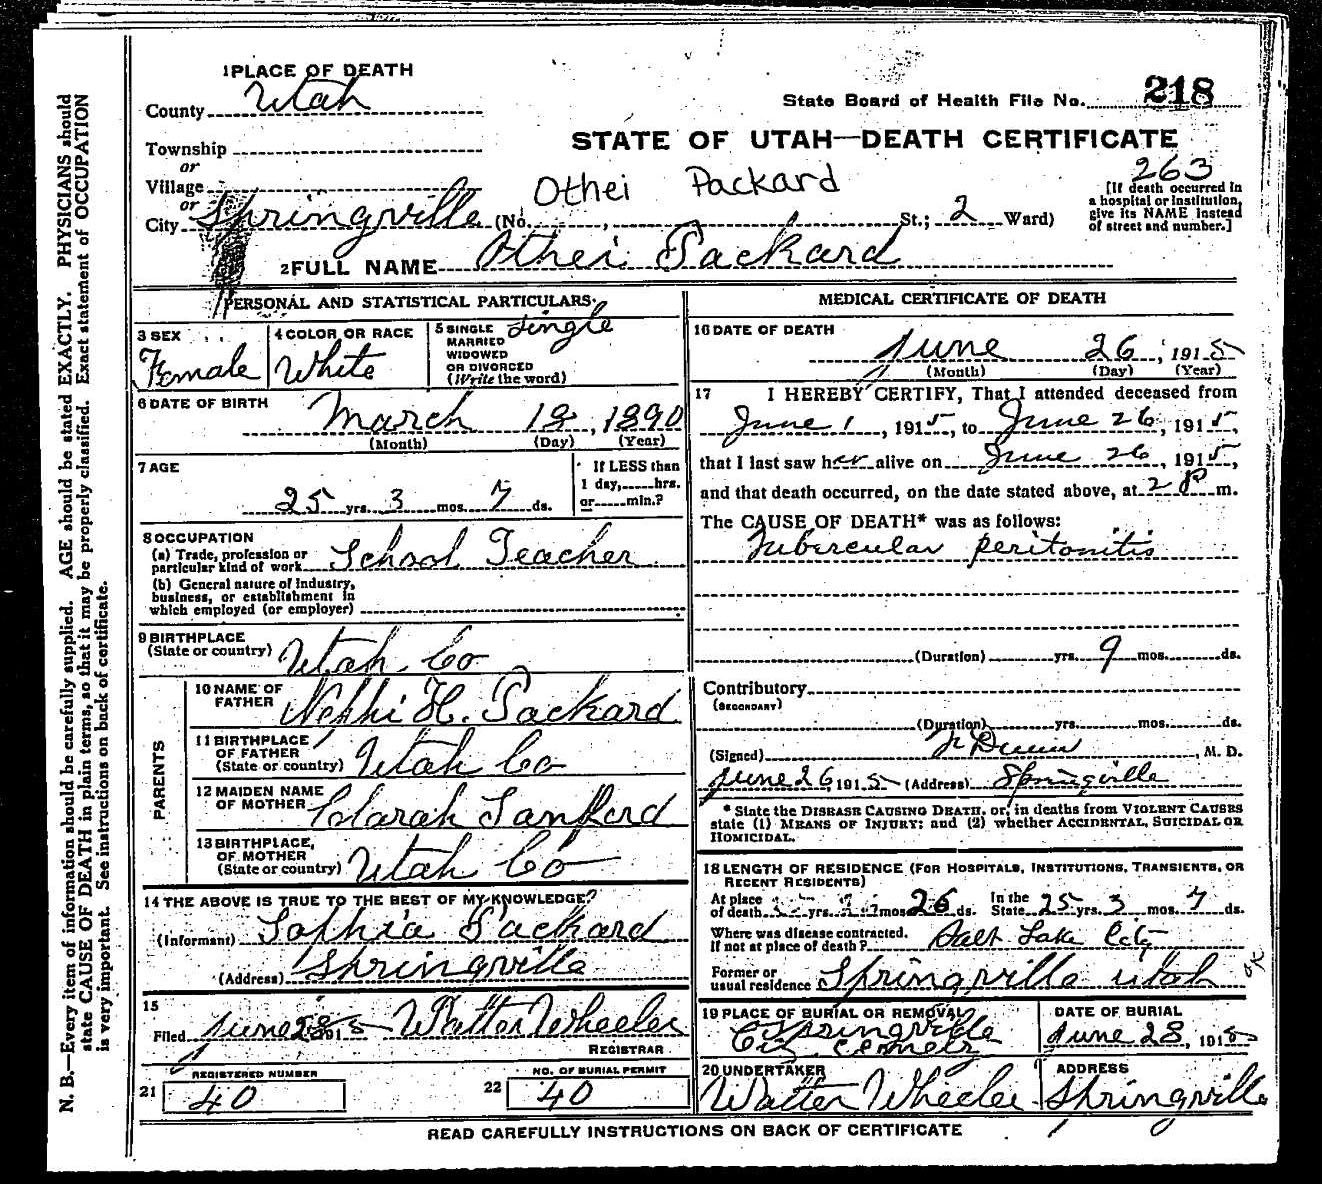 1 PLACE OF DEATH
County Utah
State Board of Health File No. 218
STATE OF UTAH—DEATH CERTIFICATE
Township
or
Village
or
City Springville (No. , St.; 2 Ward)
Othei Packard
263
[If death occurred in
a hospital or institution,
give its NAME instead
of street and number.]
2 FULL NAME Othei Packard
PERSONAL AND STATISTICAL PARTICULARS
3 SEX
Female
4 COLOR OR RACE
White
5 SINGLE
MARRIED
WIDOWED
OR DIVORCED
(Write the word)
single
6 DATE OF BIRTH
March 18, 1890
(Month) (Day) (Year)
7 AGE
25 yrs. 3 mos. 7 ds.
If LESS than
1 day, hrs.
or min.?
8 OCCUPATION
(a) Trade, profession or
particular kind of work School Teacher
(b) General nature of industry,
business, or establishment in
which employed (or employer)
9 BIRTHPLACE
(State or country) Utah Co
PARENTS
10 NAME OF
FATHER Nephi H. Packard
11 BIRTHPLACE
OF FATHER
(State or country) Utah Co
12 MAIDEN NAME
OF MOTHER Clarah Sanford
13 BIRTHPLACE,
OF MOTHER
(State or country) Utah Co
14 THE ABOVE IS TRUE TO THE BEST OF MY KNOWLEDGE?
(Informant) Sophia Packard
(Address) Springville
15
Filed June 28 1915 Walter Wheeler
REGISTRAR
21 REGISTERED NUMBER
40
22 NO. OF BURIAL PERMIT
40
MEDICAL CERTIFICATE OF DEATH
16 DATE OF DEATH
June 26, 1915
(Month) (Day) (Year)
17 I HEREBY CERTIFY, That I attended deceased from
June 1, 1915, to June 26, 1915,
that I last saw her alive on June 26, 1915,
and that death occurred, on the date stated above, at 2 P m.
The CAUSE OF DEATH* was as follows:
Tubercular peritonitis
(Duration) yrs. 9 mos. ds.
Contributory
(SECONDARY)
(Duration) yrs. mos. ds.
(Signed) Dunn, M. D.
June 26, 1915 (Address) Springville
* State the DISEASE CAUSING DEATH, or, in deaths from VIOLENT CAUSES
state (1) MEANS OF INJURY; and (2) whether ACCIDENTAL, SUICIDAL OR
HOMICIDAL.
18 LENGTH OF RESIDENCE (FOR HOSPITALS, INSTITUTIONS, TRANSIENTS, OR
RECENT RESIDENTS)
At place
of death yrs. mos. 26 ds. In the
State 25 yrs. 3 mos. 7 ds.
Where was disease contracted.
If not at place of death? Salt Lake City
Former or
usual residence Springville Utah
OK
19 PLACE OF BURIAL OR REMOVAL
Springville
City Cemetery
DATE OF BURIAL
June 28, 1915
20 UNDERTAKER
Walter Wheeler
ADDRESS
Springville
READ CAREFULLY INSTRUCTIONS ON BACK OF CERTIFICATE
N. B.—Every item of information should be carefully supplied. AGE should be stated EXACTLY. PHYSICIANS should
state CAUSE OF DEATH in plain terms, so that it may be properly classified. Exact statement of OCCUPATION
is very important. See instructions on back of certificate.